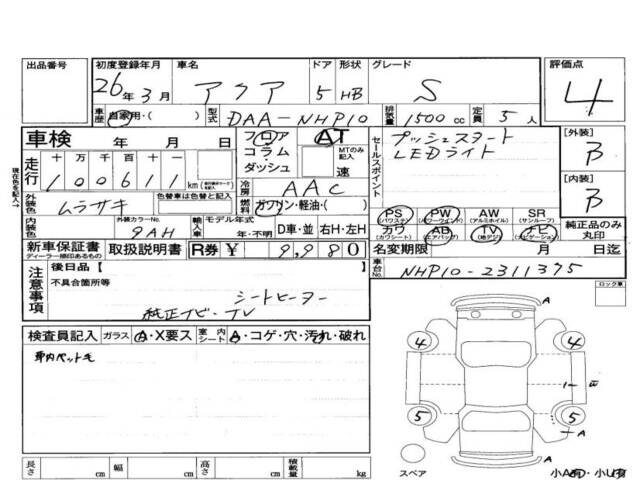 出品番号 初度登録年月 車名 ドア 形状 グレード 評価点
26年3月 アクア 5 HB S 4
車歴 自家用・( ) 型式 DAA-NHP10 排気量 1500 cc 定員 5 人
車検 年 月 日 フロア AT
コラム・ダッシュ MTのみ記入 速
セールスポイント プッシュスタート
LEDライト
[外装] B
[内装] B
現在色を記入→
走行 十 万 千 百 十 一
1 0 0 6 1 1 km
冷房 AAC
外装色 ムラサキ 色替車は色替と記入
燃料 ガソリン・軽油・( )
PS (パワステ) PW (パワーウィンド) AW (アルミホイル) SR (サンルーフ)
カワ (カワシート) AB (エアバッグ) TV (地デジ) ナビ (ナビゲーション)
純正品のみ丸印
内装色 外装カラーNo. 9AH 輸入車 モデル年式 年・不明 D車・並 右H・左H
新車保証書 ディーラー捺印あるもの 取扱説明書 R券 ¥ 9,980
名変期限 月 日迄
車台No. NHP10-2311375
注意事項 後日品【 】
不具合箇所等
シートヒーター
純正ナビ・TV
ロック車
検査員記入 ガラス A・X要ス 室内シート A・コゲ・穴・汚れ・破れ
車内ペット毛
A
4 4
5 5
A
A
スペア
長さ cm 幅 cm 高さ cm 積載量 kg